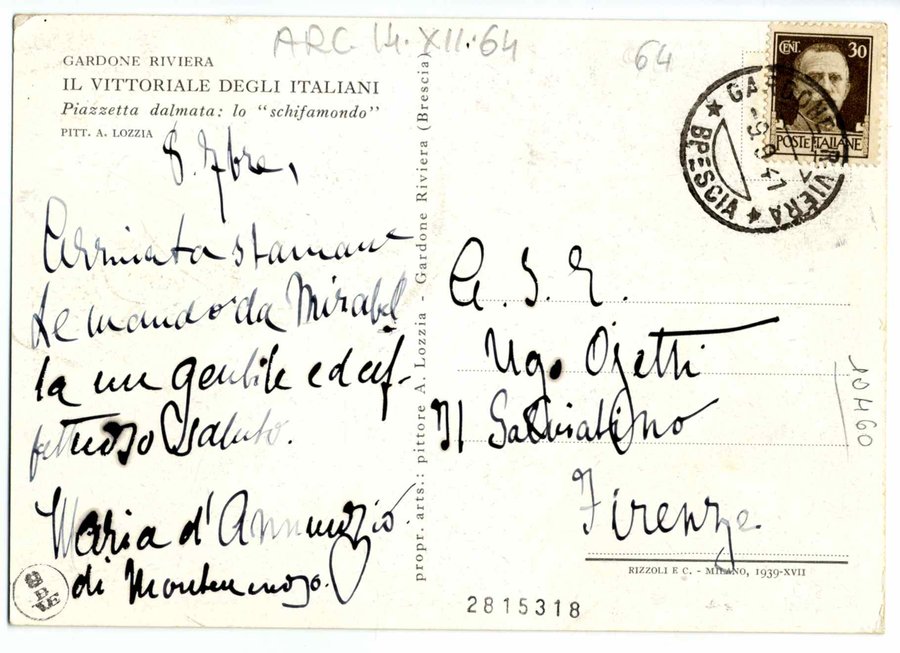 ARC 14·XII·64
64
GARDONE RIVIERA
IL VITTORIALE DEGLI ITALIANI
Piazzetta dalmata: lo "schifamondo"
PITT. A. LOZZIA
8. 7bre,
Arrivata stamane
Le mando da Mirabel
la un gentile ed af-
fettuoso saluto.
Maria d'Annunzio
di Montenevoso.
propr. arts.: pittore A. Lozzia - Gardone Riviera (Brescia)
CENT. 30
POSTE ITALIANE
GARDONE RIVIERA
9.9.41
BRESCIA
A. S. E.
Ugo Ojetti
Il Salviatino
Firenze
10460
RIZZOLI E C. - MILANO, 1939-XVII
2815318